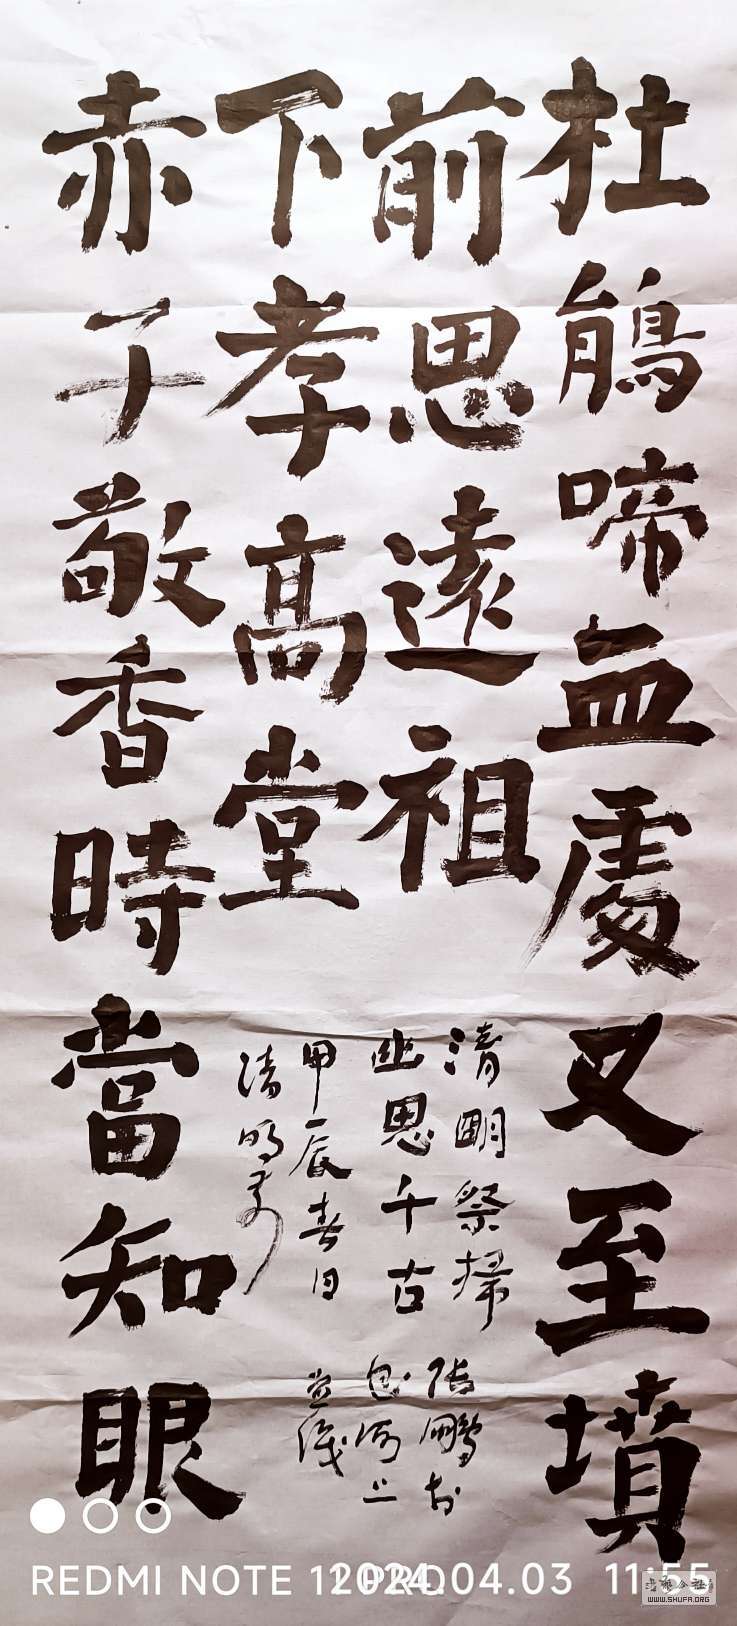 杜鵑啼血處又至墳
前思遠祖
赤子敬香時當知眼
下孝高堂
清明祭掃
幽思千古
甲辰春日
清明前
張鵬於
REDMI NOTE 11 PRO
2024.04.03 11:55
WWW.SHUFA.ORG